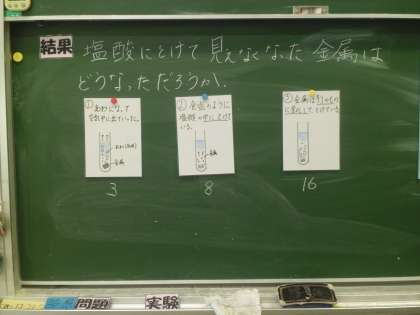 結果 塩酸にとけて見えなくなった金属は
どうなっただろうか。
① あわになって
空気中に出ていった。
あわ(気体)
金属
3
② 食塩のように
塩酸の中にとけて
いる。
金属
8
③ 金属は別のもの
に変化して、とけている。
16
問題
実験